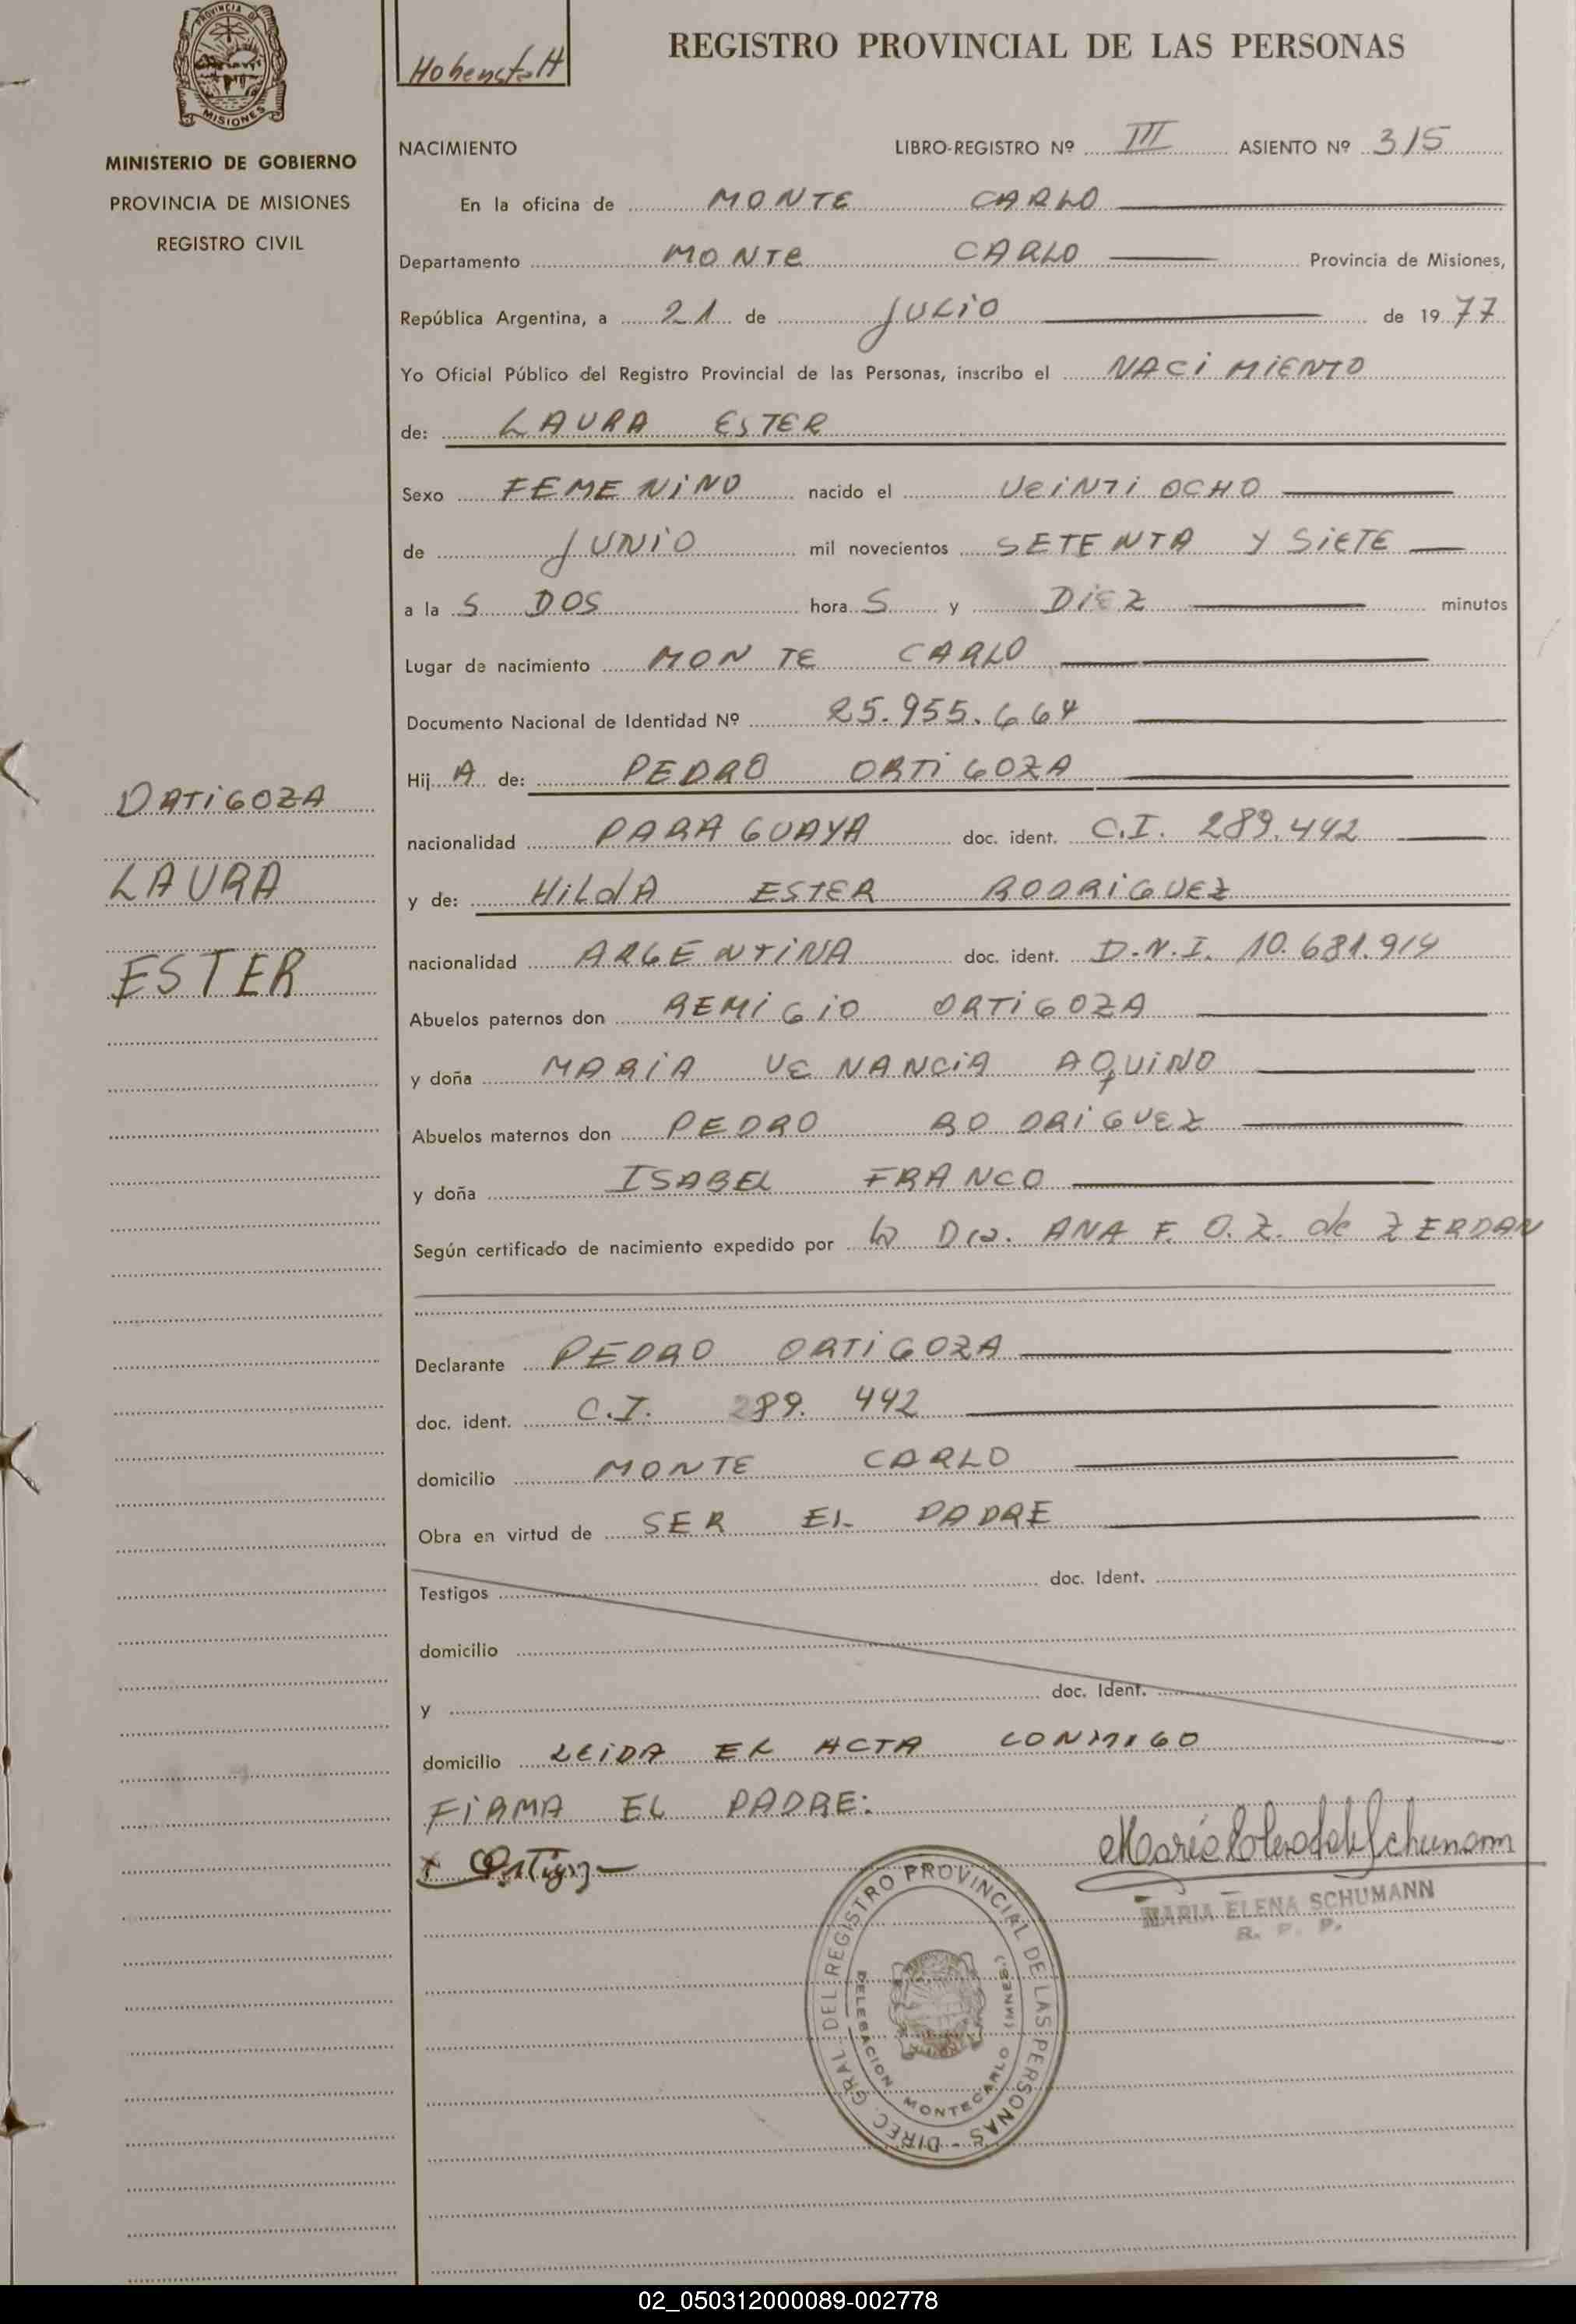 PROVINCIA DE
MISIONES
Hohenstatt
REGISTRO PROVINCIAL DE LAS PERSONAS
MINISTERIO DE GOBIERNO
PROVINCIA DE MISIONES
REGISTRO CIVIL
NACIMIENTO LIBRO-REGISTRO Nº III ASIENTO Nº 315
En la oficina de MONTE CARLO
Departamento MONTE CARLO Provincia de Misiones,
República Argentina, a 21 de JULIO de 1977
Yo Oficial Público del Registro Provincial de las Personas, inscribo el NACIMIENTO
de: LAURA ESTER
Sexo FEMENINO nacido el VEINTIOCHO
de JUNIO mil novecientos SETENTA Y SIETE
a la S DOS hora S y DIEZ minutos
Lugar de nacimiento MONTE CARLO
Documento Nacional de Identidad Nº 25.955.664
Hij A de: PEDRO ORTIGOZA
nacionalidad PARAGUAYA doc. ident. C.I. 289.442
y de: HILDA ESTER RODRIGUEZ
nacionalidad ARGENTINA doc. ident. D.N.I. 10.681.914
Abuelos paternos don REMIGIO ORTIGOZA
y doña MARIA VENANCIA AQUINO
Abuelos maternos don PEDRO RODRIGUEZ
y doña ISABEL FRANCO
Según certificado de nacimiento expedido por la Dra. ANA F. O. Z. de ZERDAN
Declarante PEDRO ORTIGOZA
doc. ident. C.I. 289.442
domicilio MONTE CARLO
Obra en virtud de SER EL PADRE
Testigos doc. Ident.
domicilio
y doc. Ident.
domicilio LEIDA EL ACTA CONMIGO
FIRMA EL PADRE:
ORTIGOZA
LAURA
ESTER
MARIA ELENA SCHUMANN
R. P. P.
DIREC. GRAL. DEL REGISTRO PROVINCIAL DE LAS PERSONAS
DELEGACION MONTECARLO (MNES.)
02_050312000089-002778